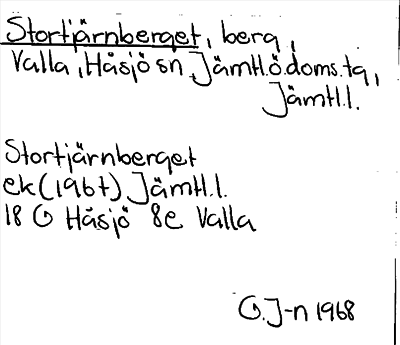 Stortjärnberget, berg,
Valla, Håsjö sn, Jämtl.ö.doms.tg,
Jämtl.l.
Stortjärnberget
ek(1967) Jämtl.l.
18 G Håsjö 8e Valla
G.J-n 1968